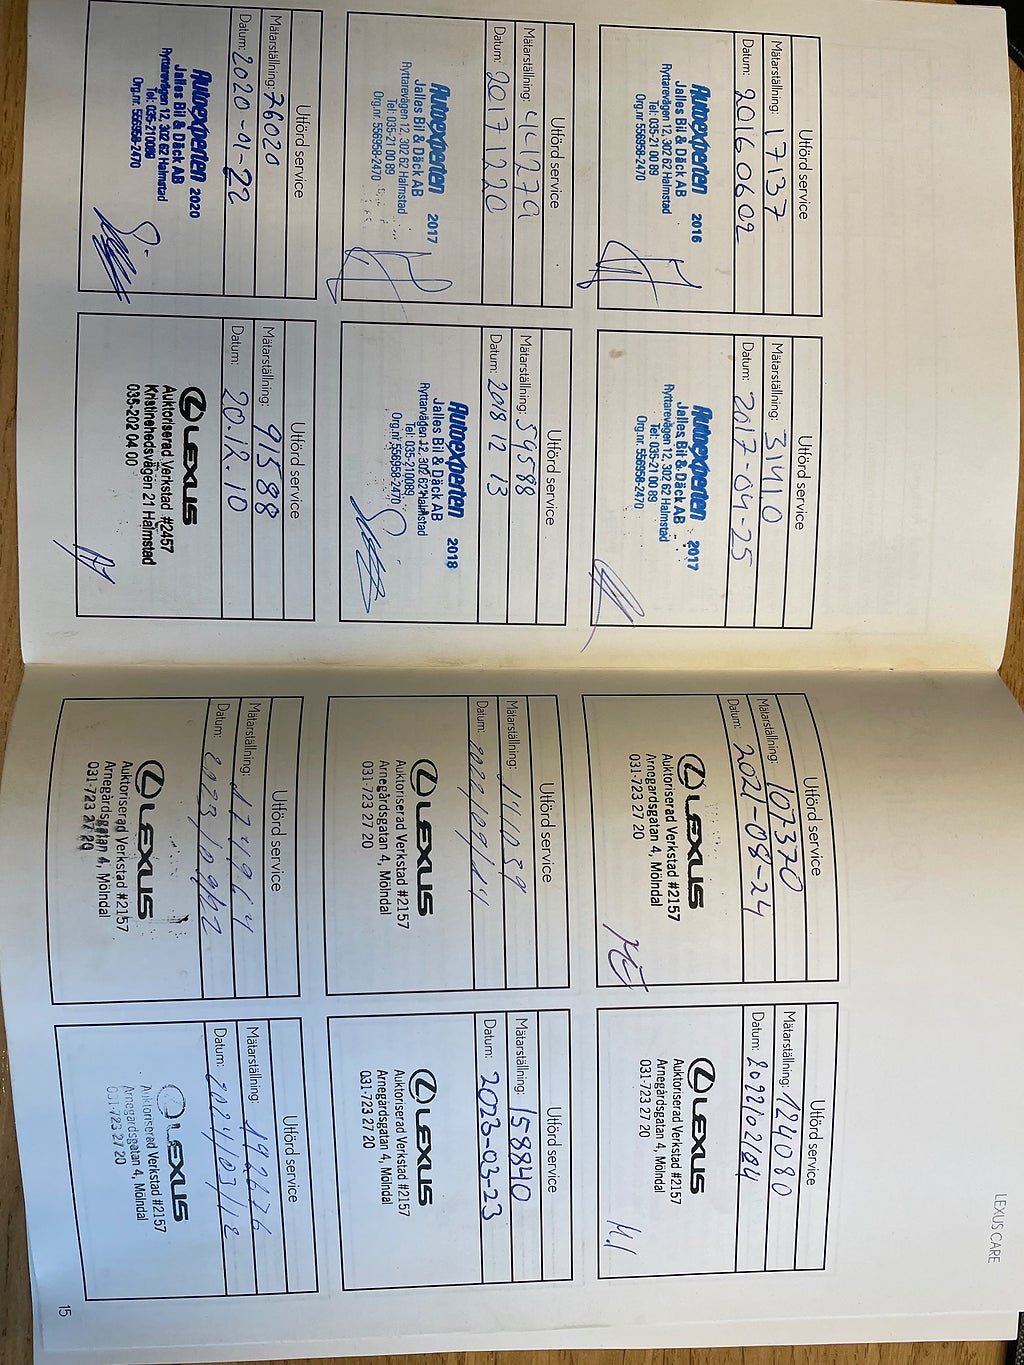 Utförd service
Mätarställning: 17137
Datum: 20160602
Autoexperten 2016
Jalles Bil & Däck AB
Ryttarevägen 12, 302 62 Halmstad
Tel: 035-21 00 89
Org.nr: 556958-2470
Utförd service
Mätarställning: 31410
Datum: 2017-04-25
Autoexperten 2017
Jalles Bil & Däck AB
Ryttarevägen 12, 302 62 Halmstad
Tel: 035-21 00 89
Org.nr: 556958-2470
Utförd service
Mätarställning: 44279
Datum: 20171220
Autoexperten 2017
Jalles Bil & Däck AB
Ryttarevägen 12, 302 62 Halmstad
Tel: 035-21 00 89
Org.nr: 556958-2470
Utförd service
Mätarställning: 59588
Datum: 2018 12 13
Autoexperten 2018
Jalles Bil & Däck AB
Ryttarvägen 12, 302 62 Halmstad
Tel: 035-210089
Org.nr 556958-2470
Utförd service
Mätarställning: 76020
Datum: 2020-01-22
Autoexperten 2020
Jalles Bil & Däck AB
Ryttarevägen 12, 302 62 Halmstad
Tel: 035-210089
Org.nr: 556958-2470
Utförd service
Mätarställning: 91588
Datum: 20.12.10
LEXUS
Auktoriserad Verkstad #2457
Kristinehedsvägen 21 Halmstad
035-202 04 00
LEXUS CARE
Utförd service
Mätarställning: 102370
Datum: 2021-08-24
LEXUS
Auktoriserad Verkstad #2157
Arnegårdsgatan 4, Mölndal
031-723 27 20
Utförd service
Mätarställning: 124080
Datum: 2022/02/04
LEXUS
Auktoriserad Verkstad #2157
Arnegårdsgatan 4, Mölndal
031-723 27 20
Utförd service
Mätarställning: 141039
Datum: 2022/09/14
LEXUS
Auktoriserad Verkstad #2157
Arnegårdsgatan 4, Mölndal
031-723 27 20
Utförd service
Mätarställning: 158840
Datum: 2023-03-23
LEXUS
Auktoriserad Verkstad #2157
Arnegårdsgatan 4, Mölndal
031-723 27 20
Utförd service
Mätarställning: 174964
Datum: 2023/09/12
LEXUS
Auktoriserad Verkstad #2157
Arnegårdsgatan 4, Mölndal
031-723 27 20
Utförd service
Mätarställning: 192626
Datum: 2024/03/12
LEXUS
Auktoriserad Verkstad #2157
Arnegårdsgatan 4, Mölndal
031-723 27 20
15